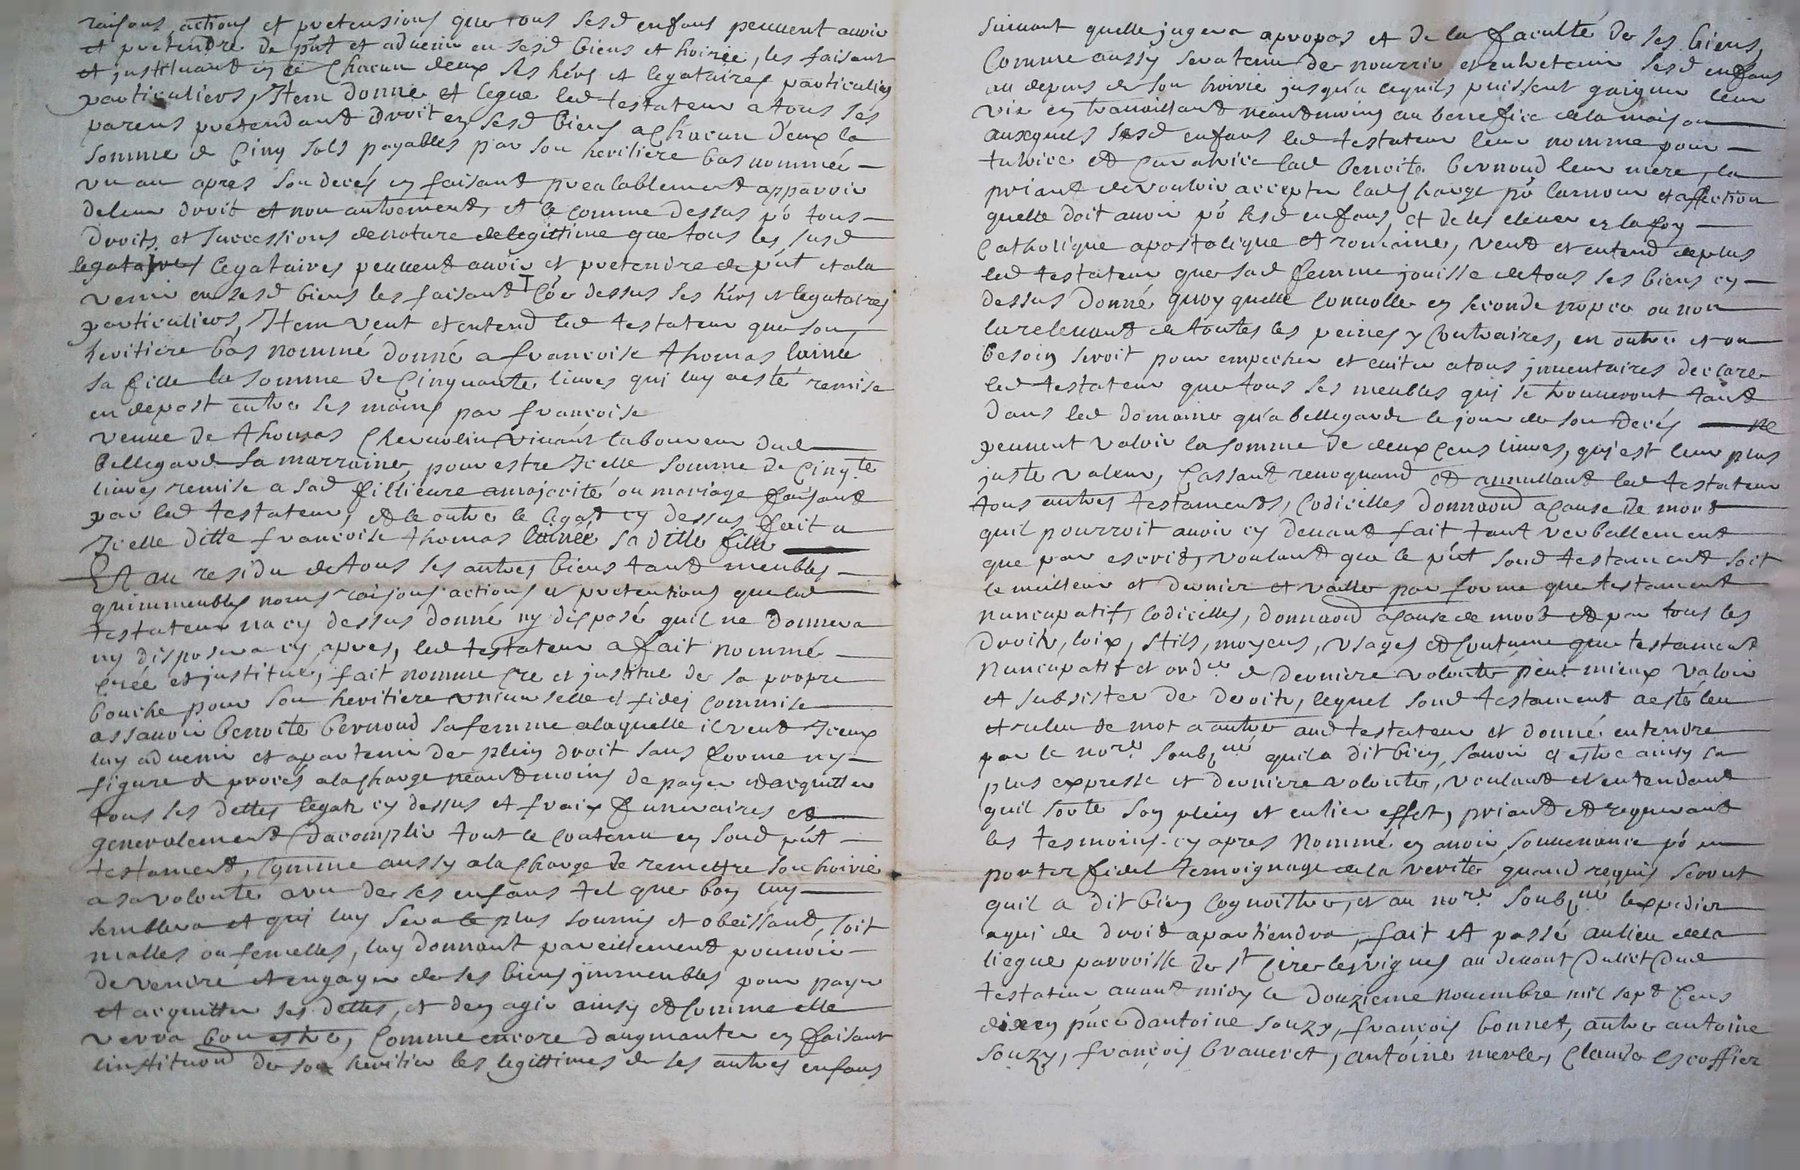 raisons, actions et pretensions que tous sesd enfans peuvent avoir
et pretendre de pñt et advenir en sesd biens et hoirie, les faisant
et justituant en ce Chacun deux ses hérs et legataires particuliers
particuliers, Item donne et legue led testateur a tous ses
parens pretendant droit en sesd biens a chacun deux la
somme de Cinq sols payables par son heritiere bas nommée
un an apres son decés en faisant prealablement apparoir
de leur droit et non autrement, et ce comme dessus pô tous
droits et successions de nature de legittime que tous les susd
legataires legataires peuvent avoir et pretendre de pñt et a la
venir en sesd biens les faisant côe dessus ses hérs et legataires
particuliers, Item veut et entend led testateur que son
heritiere bas nommé donné a francoise thomas lainée
sa fille la somme de Cinquante livres qui luy a este remise
en depost entre les mains par francoise
venue de thomas Chevrolin vivant laboureur dud
Bellegarde sa marraine, pour estre Icelle somme de Cinqte
livres remise a sad fillieure a majorité ou mariage faisant
par led testateur, et ce outre le legat cy dessus fait a
Icelle ditte francoise thomas lainée sa ditte fille
Et au residu de tous ses autres biens tant meubles
qu'immeubles noms raisons actions et pretentions que led
testateur na cy dessus donné ny disposé quil ne donnera
ny disposera cy apres, led testateur a fait nommé
créé et justitué, fait nomme cre et justitue de sa propre
bouche pour son heritiere universelle et fidei commise
assavoir Benoite Bernoud sa femme a laquelle il veut Iceux
luy advenir et apartenir de plein droit sans forme ny
figure de procés a la charge neantmoins de payer et acquitter
tous ses dettes legats cy dessus et fraix funeraires et
generalement d'acomplir tout le contenu en sond pñt
testament, Comme aussy a la charge de remettre son hoirie
a sa volonté a un de ses enfans tel que bon luy
semblera et qui luy sera le plus soumis et obeissant, soit
malles ou femelles, luy donnant pareillement pouvoir
de vendre et engager de ses biens jmmeubles pour payer
et acquitter ses dettes, et d'en agir ainsy et comme elle
verra bon estre, Comme encore d'augmanter en faisant
linstituõn de son heritier les legittimes de ses autres enfans
suivant quelle jugera apropos et de la faculté de ses biens,
Comme aussy sera tenue de nourrir et entretenir sesd enfans
au depens de son hoirie jusqu'a ce quils puissent gaigner leur
vie en travaillant neantmoins au benefice de la maison
auxquels sesd enfans led testateur leur nomme pour
tutrice et Curatrice lad Benoite Bernoud leur mere, la
priant de vouloir accepter lad charge pô lamour et affection
quelle doit avoir pô sesd enfans, et de les elever en la foy
Catholique apostolique et romaine, veut et entend deplus
led testateur que sad femme jouisse de tous ses biens cy
dessus donné quoy quelle convolle en seconde nopce ou non
la relevant de toutes les peines y contraires, en outre et ou
besoin seroit pour empecher et eviter a tous jnventaires declare
led testateur que tous ses meubles qui se trouveront tant
dans led domaine qu'a bellegarde le jour de son decés ne
peuvent valoir la somme de deux cens livres, qui est leur plus
juste valeur, Cassant revoquand et annullant led testateur
tous autres testaments, Codicilles donnaõn a cause de mort
quil pourroit avoir cy devant fait tant verballement
que par escrit, voulant que le pñt sond testament soit
le meilleur et dernier et vaille par forme que testament
nuncupatif, Codicilles, donnaõn a cause de mort et par tous les
droits, loix, stils, moyens, usages et coutume que testament
Nuncupatif et ordre de derniere volonté peut mieux valoir
et subsister de droits, lequel sond testament a esté leu
et releu de mot a autre aud testateur et donné entendre
par le nore soubné quila dit bien savoir et estre ainsy sa
plus expresse et derniere volonté, voulant et entendant
quil sorte son plein et entier effet, priant et requerant
les tesmoins cy apres Nommé en avoir souvenance pô en
porter fidel temoignage de la verité quand requis seront
quil a dit bien Cognoistre, et au nore soubné lexpedier
a qui de droit apartiendra, fait et passé au lieu de la
liegue parroisse de St Cire les vignes au devant dulict dud
testateur avant midy le douzieme novembre mil sept Cens
dixen pñce dantoine souzy, francois bonnet, autre antoine
souzy, francois braveret, antoine merle, Claude escoffier